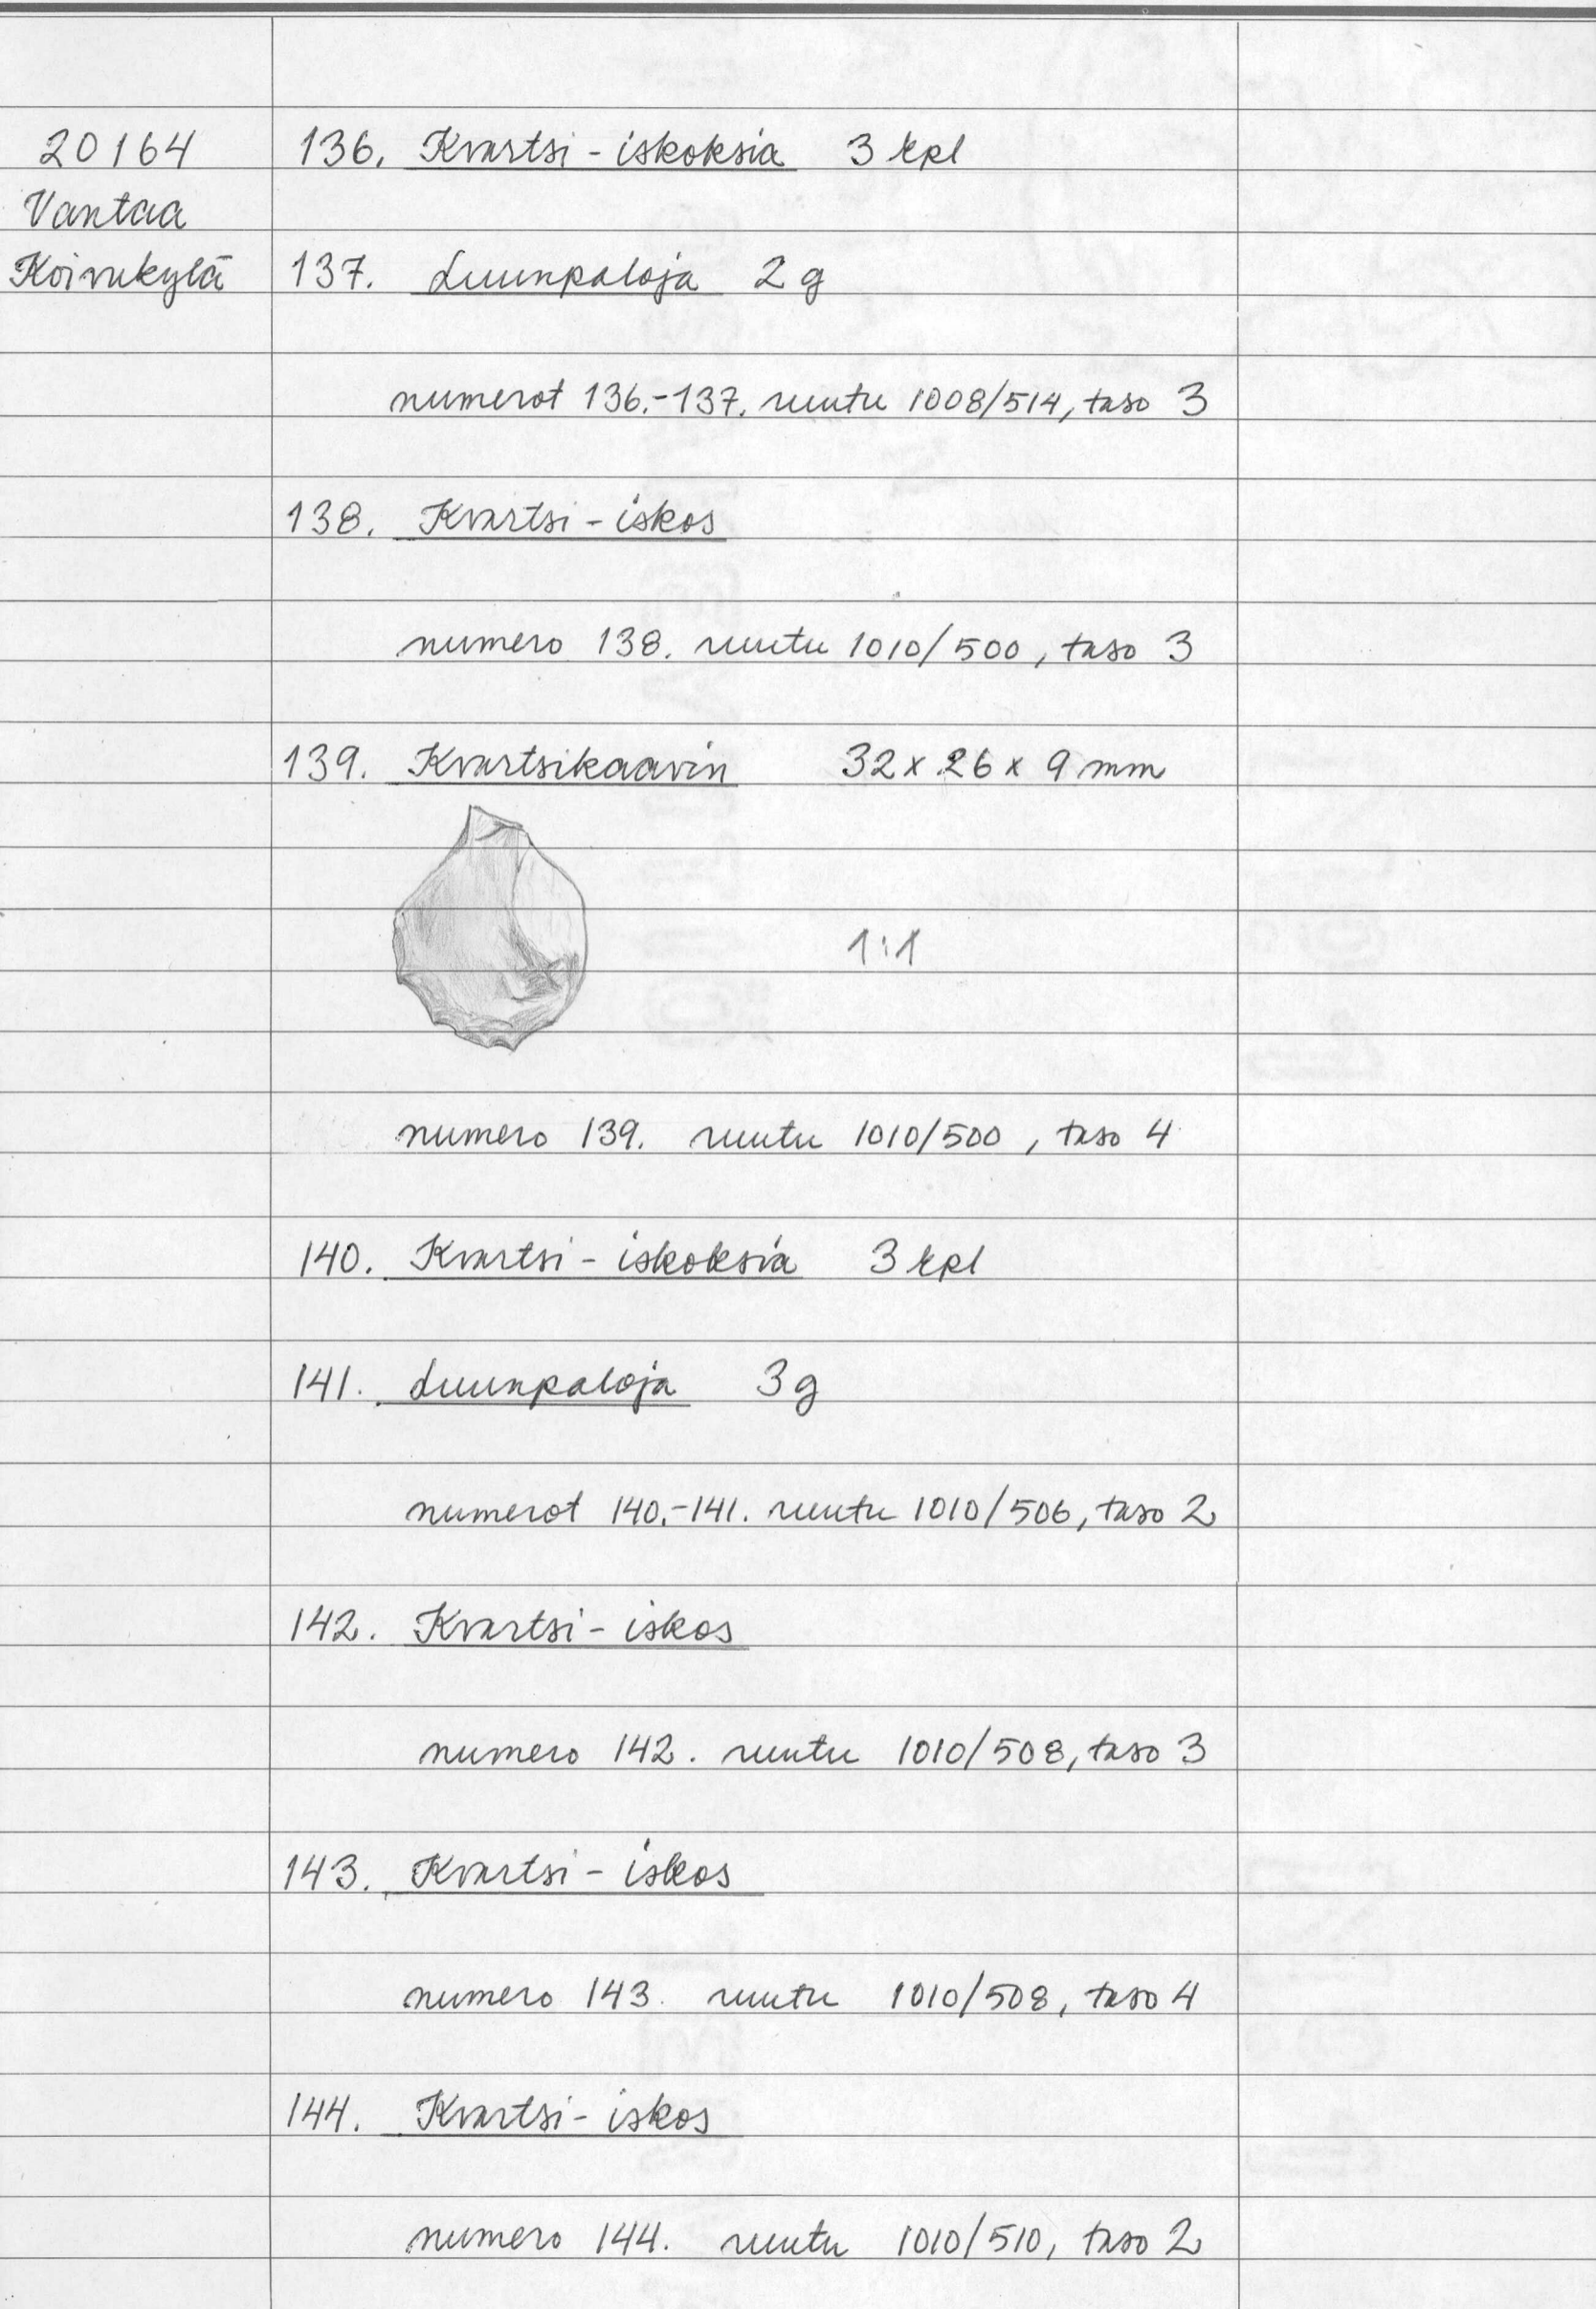 20164 136. Kvartsi-iskoksia 3 kpl
Vantaa
Koivukylä 137. Luunpaloja 2 g
numerot 136.-137. ruutu 1008/514, taso 3
138. Kvartsi-iskos
numero 138. ruutu 1010/500, taso 3
139. Kvartsikaavin 32 x 26 x 9 mm
1:1
numero 139. ruutu 1010/500, taso 4
140. Kvartsi-iskoksia 3 kpl
141. Luunpaloja 3 g
numerot 140.-141. ruutu 1010/506, taso 2
142. Kvartsi-iskos
numero 142. ruutu 1010/508, taso 3
143. Kvartsi-iskos
numero 143. ruutu 1010/508, taso 4
144. Kvartsi-iskos
numero 144. ruutu 1010/510, taso 2